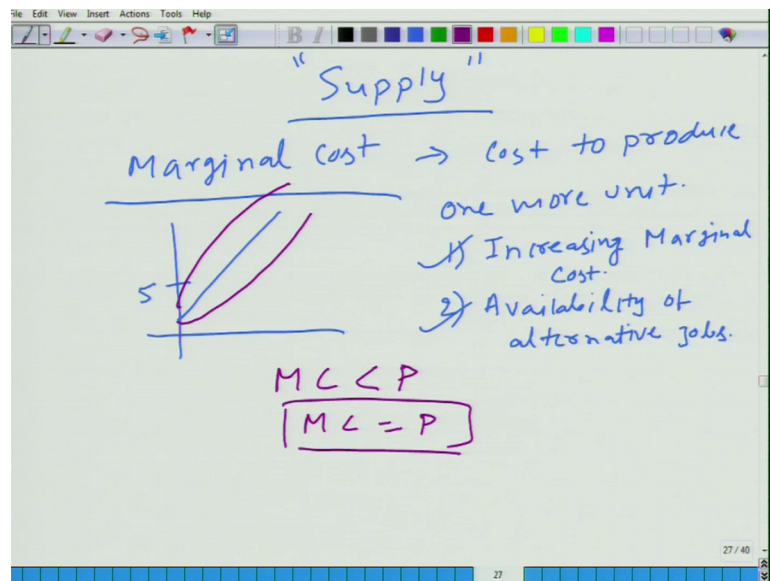 File Edit View Insert Actions Tools Help
B I
"Supply"
Marginal cost → cost to produce
one more unit.
1) Increasing Marginal
cost.
2) Availability of
alternative jobs.
5
MC < P
MC = P
27 / 40
27